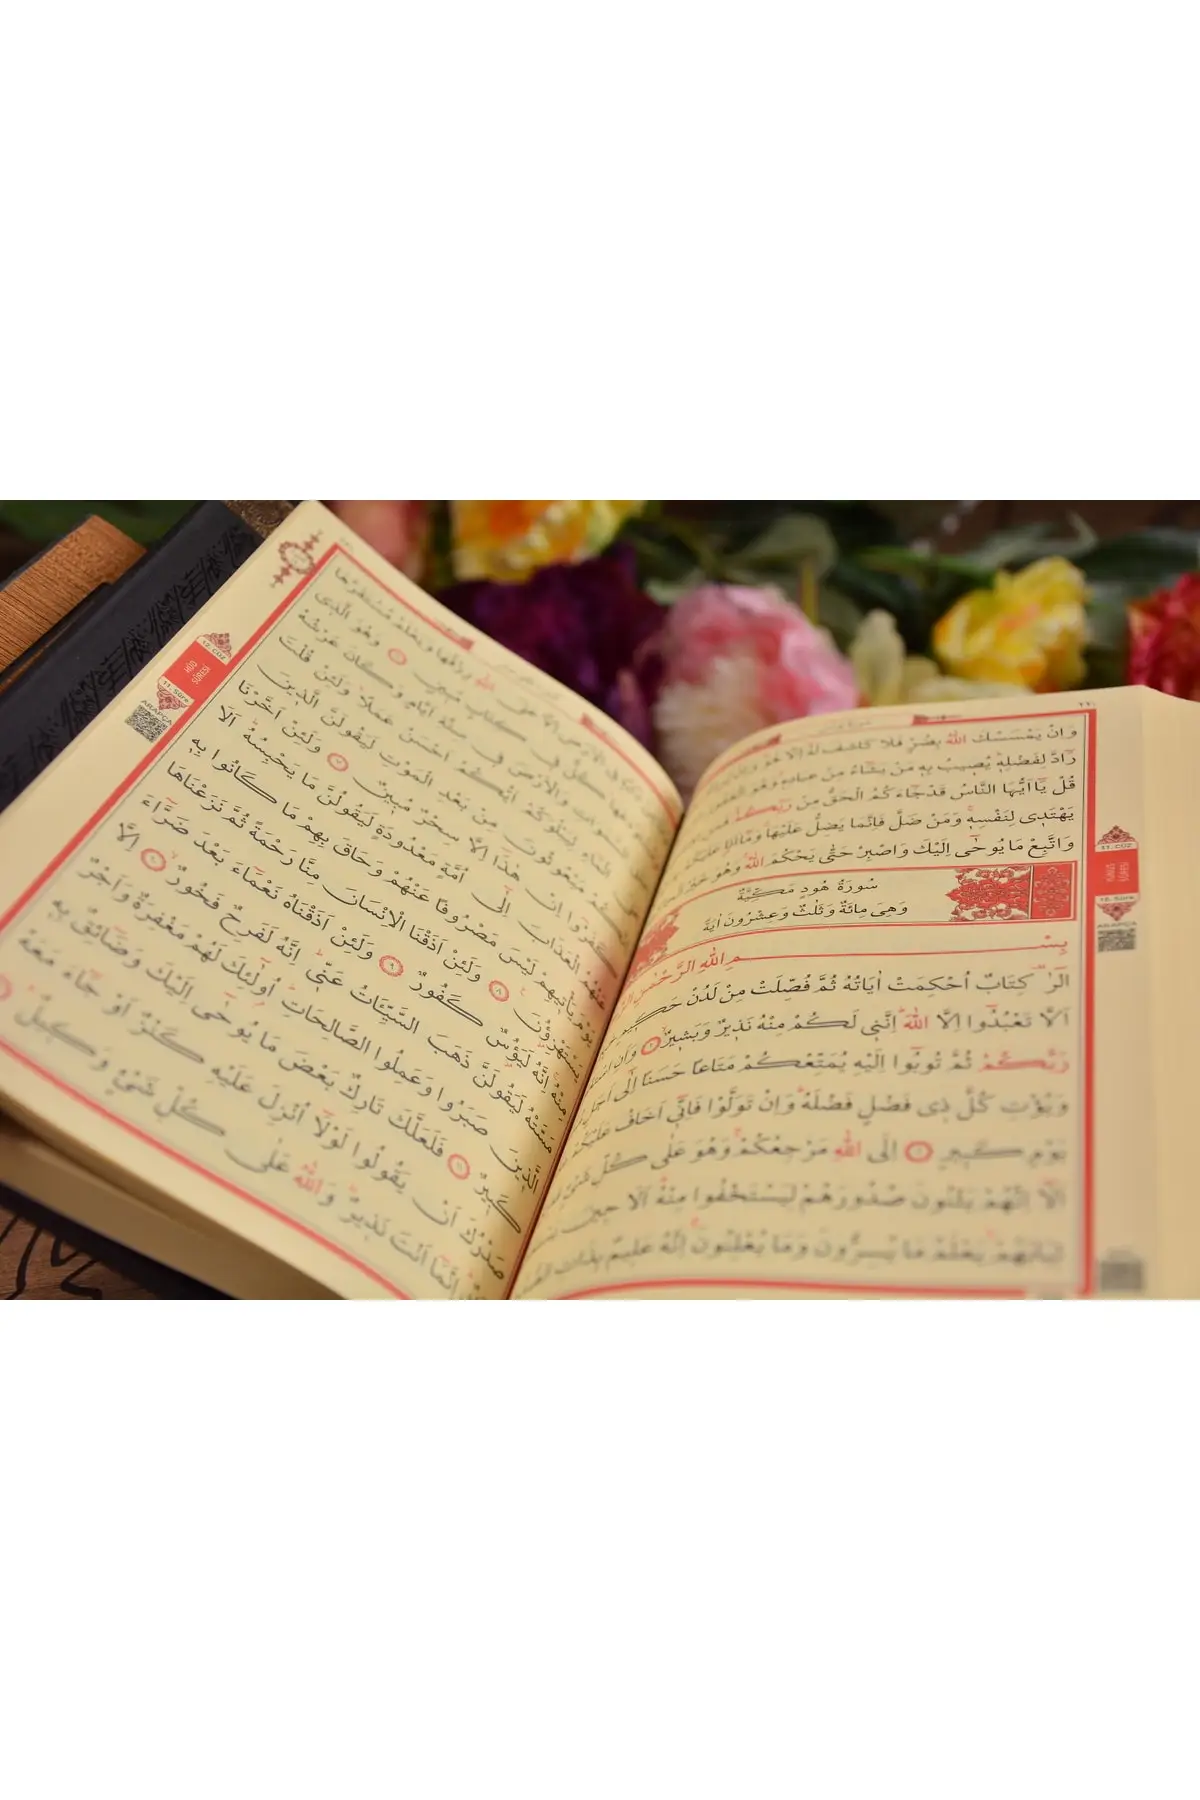 ٢٢٠
وَاِنْ يَمْسَسْكَ اللّٰهُ بِضُرٍّ فَلَا كَاشِفَ لَهُٓ اِلَّا هُوَ وَاِنْ
رَٓادَّ لِفَضْلِهٖ يُصٖيبُ بِهٖ مَنْ يَشَٓاءُ مِنْ عِبَادِهٖ وَهُوَ الْغَفُورُ
قُلْ يَٓا اَيُّهَا النَّاسُ قَدْ جَٓاءَكُمُ الْحَقُّ مِنْ رَبِّكُمْ فَمَنِ
يَهْتَدٖى لِنَفْسِهٖ وَمَنْ ضَلَّ فَاِنَّمَا يَضِلُّ عَلَيْهَا وَمَٓا اَنَا۬ عَلَيْكُمْ
وَاتَّبِعْ مَا يُوحٰٓى اِلَيْكَ وَاصْبِرْ حَتّٰى يَحْكُمَ اللّٰهُ وَهُوَ خَيْرُ
سُورَةُ هُودٍ مَكِّيَّةٌ
وَهِىَ مِائَةٌ وَثَلٰثٌ وَعِشْرُونَ اٰيَةً
بِسْمِ اللّٰهِ الرَّحْمٰنِ
الٓرٰ كِتَابٌ اُحْكِمَتْ اٰيَاتُهُ ثُمَّ فُصِّلَتْ مِنْ لَدُنْ حَكٖيمٍ
اَلَّا تَعْبُدُٓوا اِلَّا اللّٰهَ اِنَّنٖى لَكُمْ مِنْهُ نَذٖيرٌ وَبَشٖيرٌ ٢ وَاَنِ
رَبَّكُمْ ثُمَّ تُوبُٓوا اِلَيْهِ يُمَتِّعْكُمْ مَتَاعًا حَسَنًا اِلٰٓى اَجَلٍ
وَيُؤْتِ كُلَّ ذٖى فَضْلٍ فَضْلَهُ وَاِنْ تَوَلَّوْا فَاِنّٖٓى اَخَافُ عَلَيْكُمْ
يَوْمٍ كَبٖيرٍ ٣ اِلَى اللّٰهِ مَرْجِعُكُمْ وَهُوَ عَلٰى كُلِّ شَىْءٍ
اَلَٓا اِنَّهُمْ يَثْنُونَ صُدُورَهُمْ لِيَسْتَخْفُوا مِنْهُ اَلَا حٖينَ
ثِيَابَهُمْ يَعْلَمُ مَا يُسِرُّونَ وَمَا يُعْلِنُونَ اِنَّهُ عَلٖيمٌ بِذَاتِ
11. CÜZ
YUNUS SÛRESİ
10. Sûre
ARAPÇA
اللّٰهِ رِزْقُهَا وَيَعْلَمُ مُسْتَقَرَّهَا
كِتَابٍ مُبٖينٍ ٦ وَهُوَ الَّذٖى
وَالْاَرْضَ فٖى سِتَّةِ اَيَّامٍ وَكَانَ عَرْشُهُ
لِيَبْلُوَكُمْ اَيُّكُمْ اَحْسَنُ عَمَلًا وَلَئِنْ قُلْتَ
مَبْعُوثُونَ مِنْ بَعْدِ الْمَوْتِ لَيَقُولَنَّ الَّذٖينَ
كَفَرُٓوا اِنْ هٰذَٓا اِلَّا سِحْرٌ مُبٖينٌ ٧ وَلَئِنْ اَخَّرْنَا
عَنْهُمُ الْعَذَابَ اِلٰٓى اُمَّةٍ مَعْدُودَةٍ لَيَقُولُنَّ مَا يَحْبِسُهُ اَلَا
يَوْمَ يَأْتٖيهِمْ لَيْسَ مَصْرُوفًا عَنْهُمْ وَحَاقَ بِهِمْ مَا كَانُوا بِهٖ
يَسْتَهْزِؤُنَ ٨ وَلَئِنْ اَذَقْنَا الْاِنْسَانَ مِنَّا رَحْمَةً ثُمَّ نَزَعْنَاهَا
مِنْهُ اِنَّهُ لَيَؤُسٌ كَفُورٌ ٩ وَلَئِنْ اَذَقْنَاهُ نَعْمَٓاءَ بَعْدَ ضَرَّٓاءَ
مَسَّتْهُ لَيَقُولَنَّ ذَهَبَ السَّيِّـَٔاتُ عَنّٖى اِنَّهُ لَفَرِحٌ فَخُورٌ ١٠ اِلَّا
الَّذٖينَ صَبَرُوا وَعَمِلُوا الصَّالِحَاتِ اُولٰٓئِكَ لَهُمْ مَغْفِرَةٌ وَاَجْرٌ
كَبٖيرٌ ١١ فَلَعَلَّكَ تَارِكٌ بَعْضَ مَا يُوحٰٓى اِلَيْكَ وَضَٓائِقٌ بِهٖ
صَدْرُكَ اَنْ يَقُولُوا لَوْلَٓا اُنْزِلَ عَلَيْهِ كَنْزٌ اَوْ جَٓاءَ مَعَهُ
اِنَّمَٓا اَنْتَ نَذٖيرٌ وَاللّٰهُ عَلٰى كُلِّ شَىْءٍ وَكٖيلٌ
12. CÜZ
HÛD SÛRESİ
11. Sûre
ARAPÇA